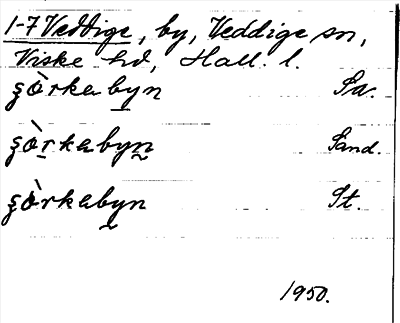 1-7 Veddige, by, Veddige sn,
Viske hd, Hall. l.
şò̀rkabyn Sa.
şò̀rkabyn Sand.
şò̀rkabyn St.
1950.